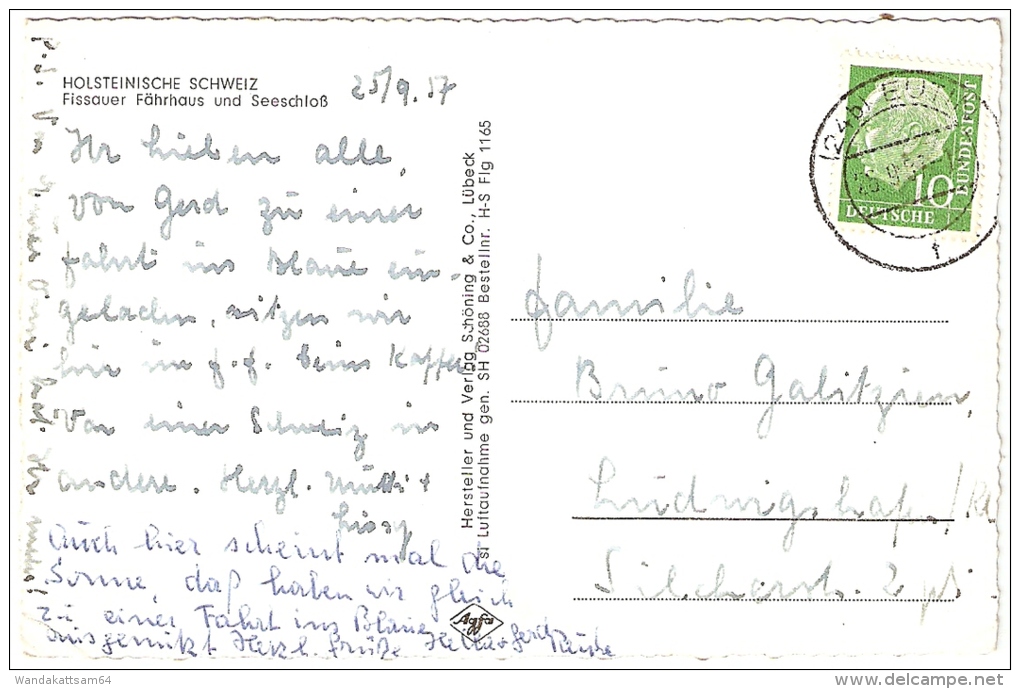 HOLSTEINISCHE SCHWEIZ
Fissauer Fährhaus und Seeschloß
25/9.57
Ihr lieben alle,
von Gerd zu einer
Fahrt ins Blaue ein-
geladen, sitzen wir
hier im F.F. beim Kaffee
Von einer Schweiz in
andere. Herzl. Mutti +
Lissy
Auch hier scheint mal die
Sonne, daß haben wir gleich
zu einer Fahrt ins Blaue
ausgenützt Herzl. Grüße
Hersteller und Verlag Schöning & Co., Lübeck
Luftaufnahme gen. SH 02688 Bestellnr. H-S Flg 1165
Agfa
10
DEUTSCHE
BUNDESPOST
(24b) EUTIN
f
Familie
Bruno Galitzien,
Ludwigshafen/Rh
Silcherstr. 2 pt.
Wandakattsam64
delcampe.net